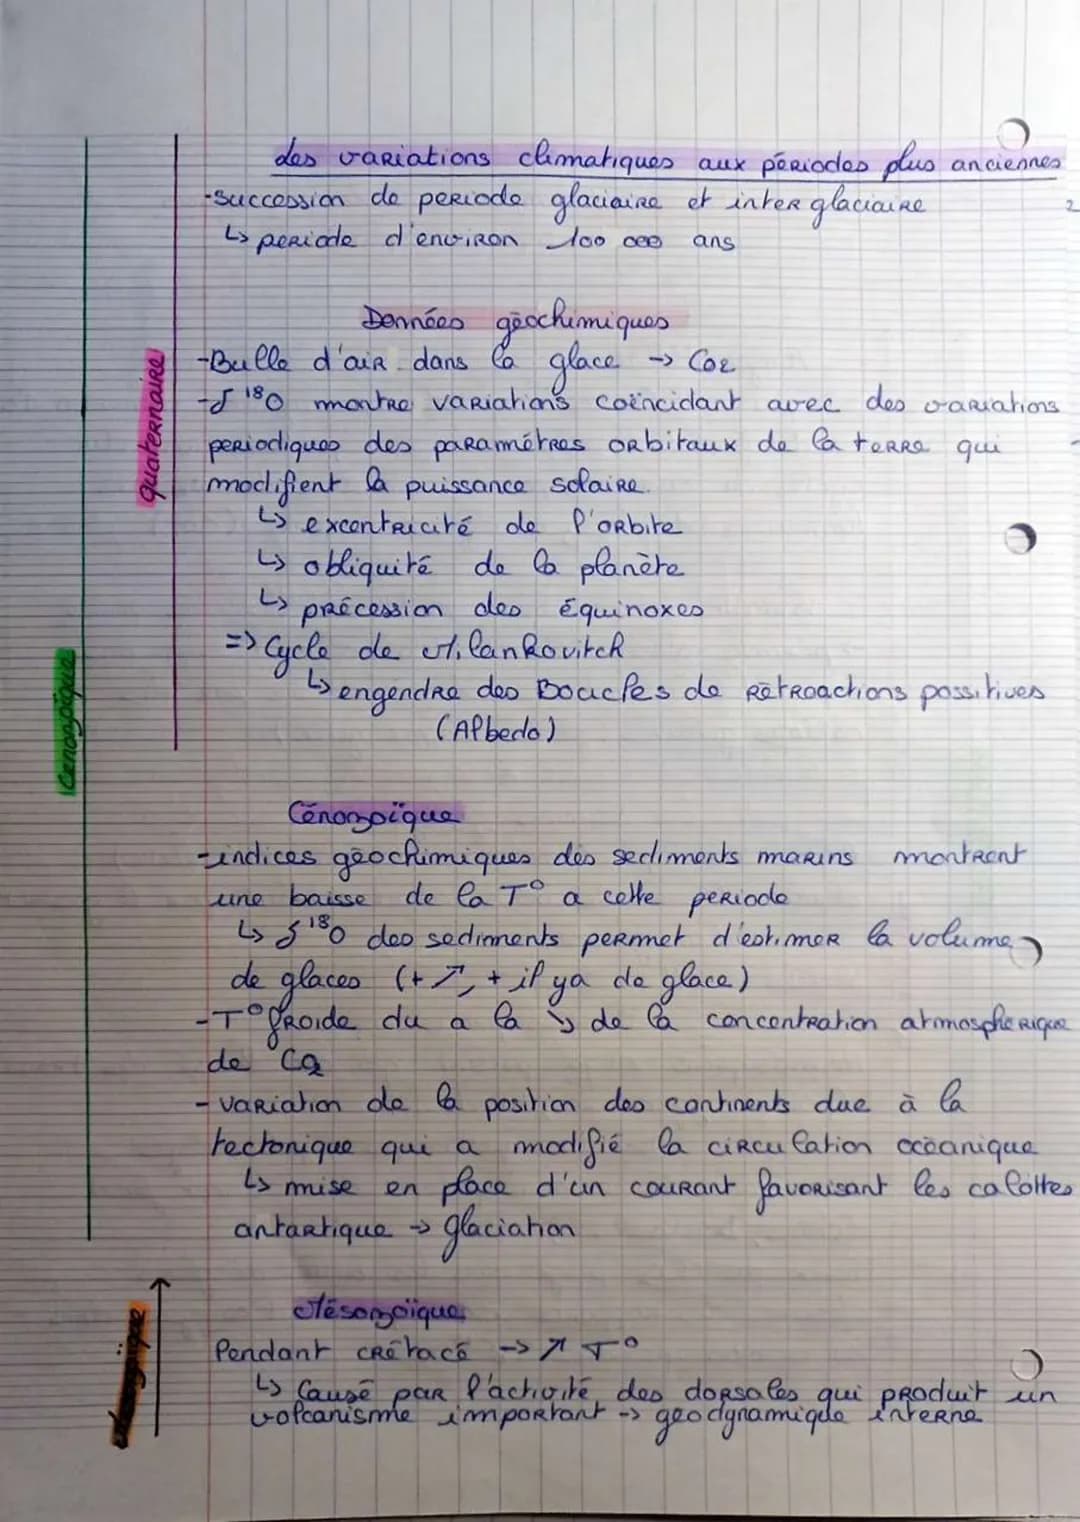 des variations climatiques aux périodes plus anciennes
-succession de periode glaciaire et inter glaciaire
↳ periode d'environ 100 000 ans
Données géochimiques
-Bulle d'air dans la glace → CO2
-δ 18O montre variations coïncidant avec des variations
periodiques des paramétres orbitaux de la terre qui
modifient la puissance solaire.
↳ excentricité de l'orbite
↳ obliquité de la planète
↳ précession des équinoxes
=> Cycle de Milankovitch
↳ engendre des Boucles de Rétroactions possitives
(Albedo)
quaternaire
Cénozoïque
Cénozoïque
-indices géochimiques des sediments marins montrent
une baisse de la T° a cette periode
↳ δ 18O des sediments permet d'estimer la volume
de glaces (+ ↗, + il ya de glace)
-T° froide du a la ↘ de la concentration atmospherique
de CO2
-variation de la position des continents due à la
tectonique qui a modifié la circulation océanique
↳ mise en place d'un courant favorisant les calottes
antartique → glaciation
Mésozoïque
Mésozoïque
Pendant crétacé → ↗ T°
↳ Causé par l'activité des dorsales qui produit un
volcanisme important → géodynamique interne
2